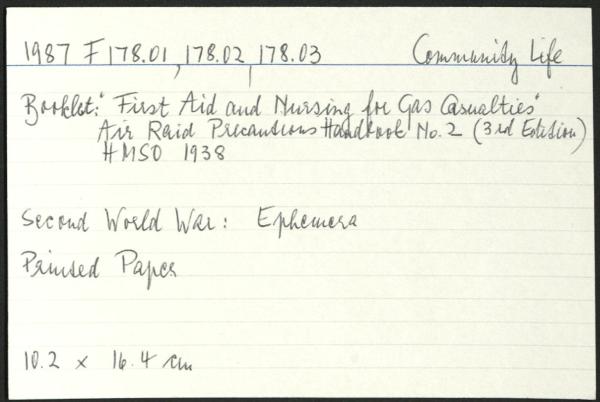 1987 F178.01, 178.02, 178.03 Community Life
Booklet: "First Aid and Nursing for Gas Casualties"
Air Raid Precautions Handbook No. 2 (3rd Edition)
HMSO 1938
Second World War: Ephemera
Printed Paper
10.2 x 16.4 cm